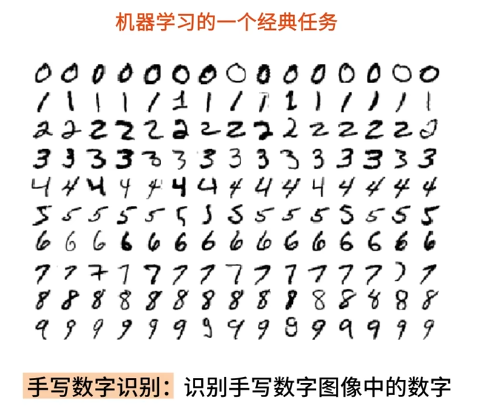 机器学习的一个经典任务
0 0 0 0 0 0 0 0 0 0 0 0 0 0 0
1 1 1 1 1 1 1 1 1 1 1 1 1 1 1
2 2 2 2 2 2 2 2 2 2 2 2 2 2 2
3 3 3 3 3 3 3 3 3 3 3 3 3 3 3
4 4 4 4 4 4 4 4 4 4 4 4 4 4 4
5 5 5 5 5 5 5 5 5 5 5 5 5 5 5
6 6 6 6 6 6 6 6 6 6 6 6 6 6 6
7 7 7 7 7 7 7 7 7 7 7 7 7 7 7
8 8 8 8 8 8 8 8 8 8 8 8 8 8 8
9 9 9 9 9 9 9 9 9 9 9 9 9 9 9
手写数字识别：识别手写数字图像中的数字